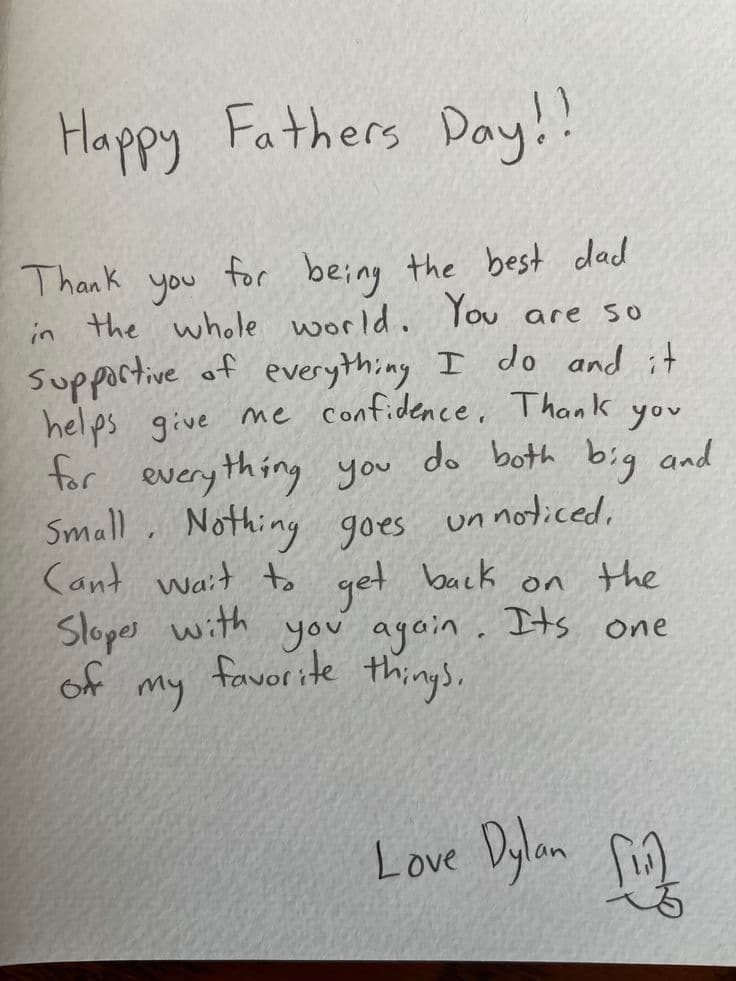 Happy Fathers Day!!
Thank you for being the best dad
in the whole world. You are so
supportive of everything I do and it
helps give me confidence. Thank you
for everything you do both big and
small. Nothing goes unnoticed.
Cant wait to get back on the
Slopes with you again. Its one
of my favorite things.
Love Dylan